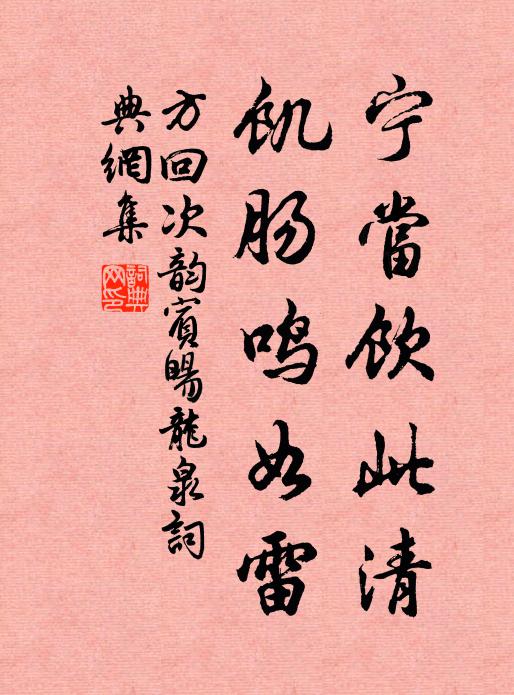 宁當飲此清
飢肠鸣如雷
方回次韵賓暘龍泉詞
典網集
詞典网印